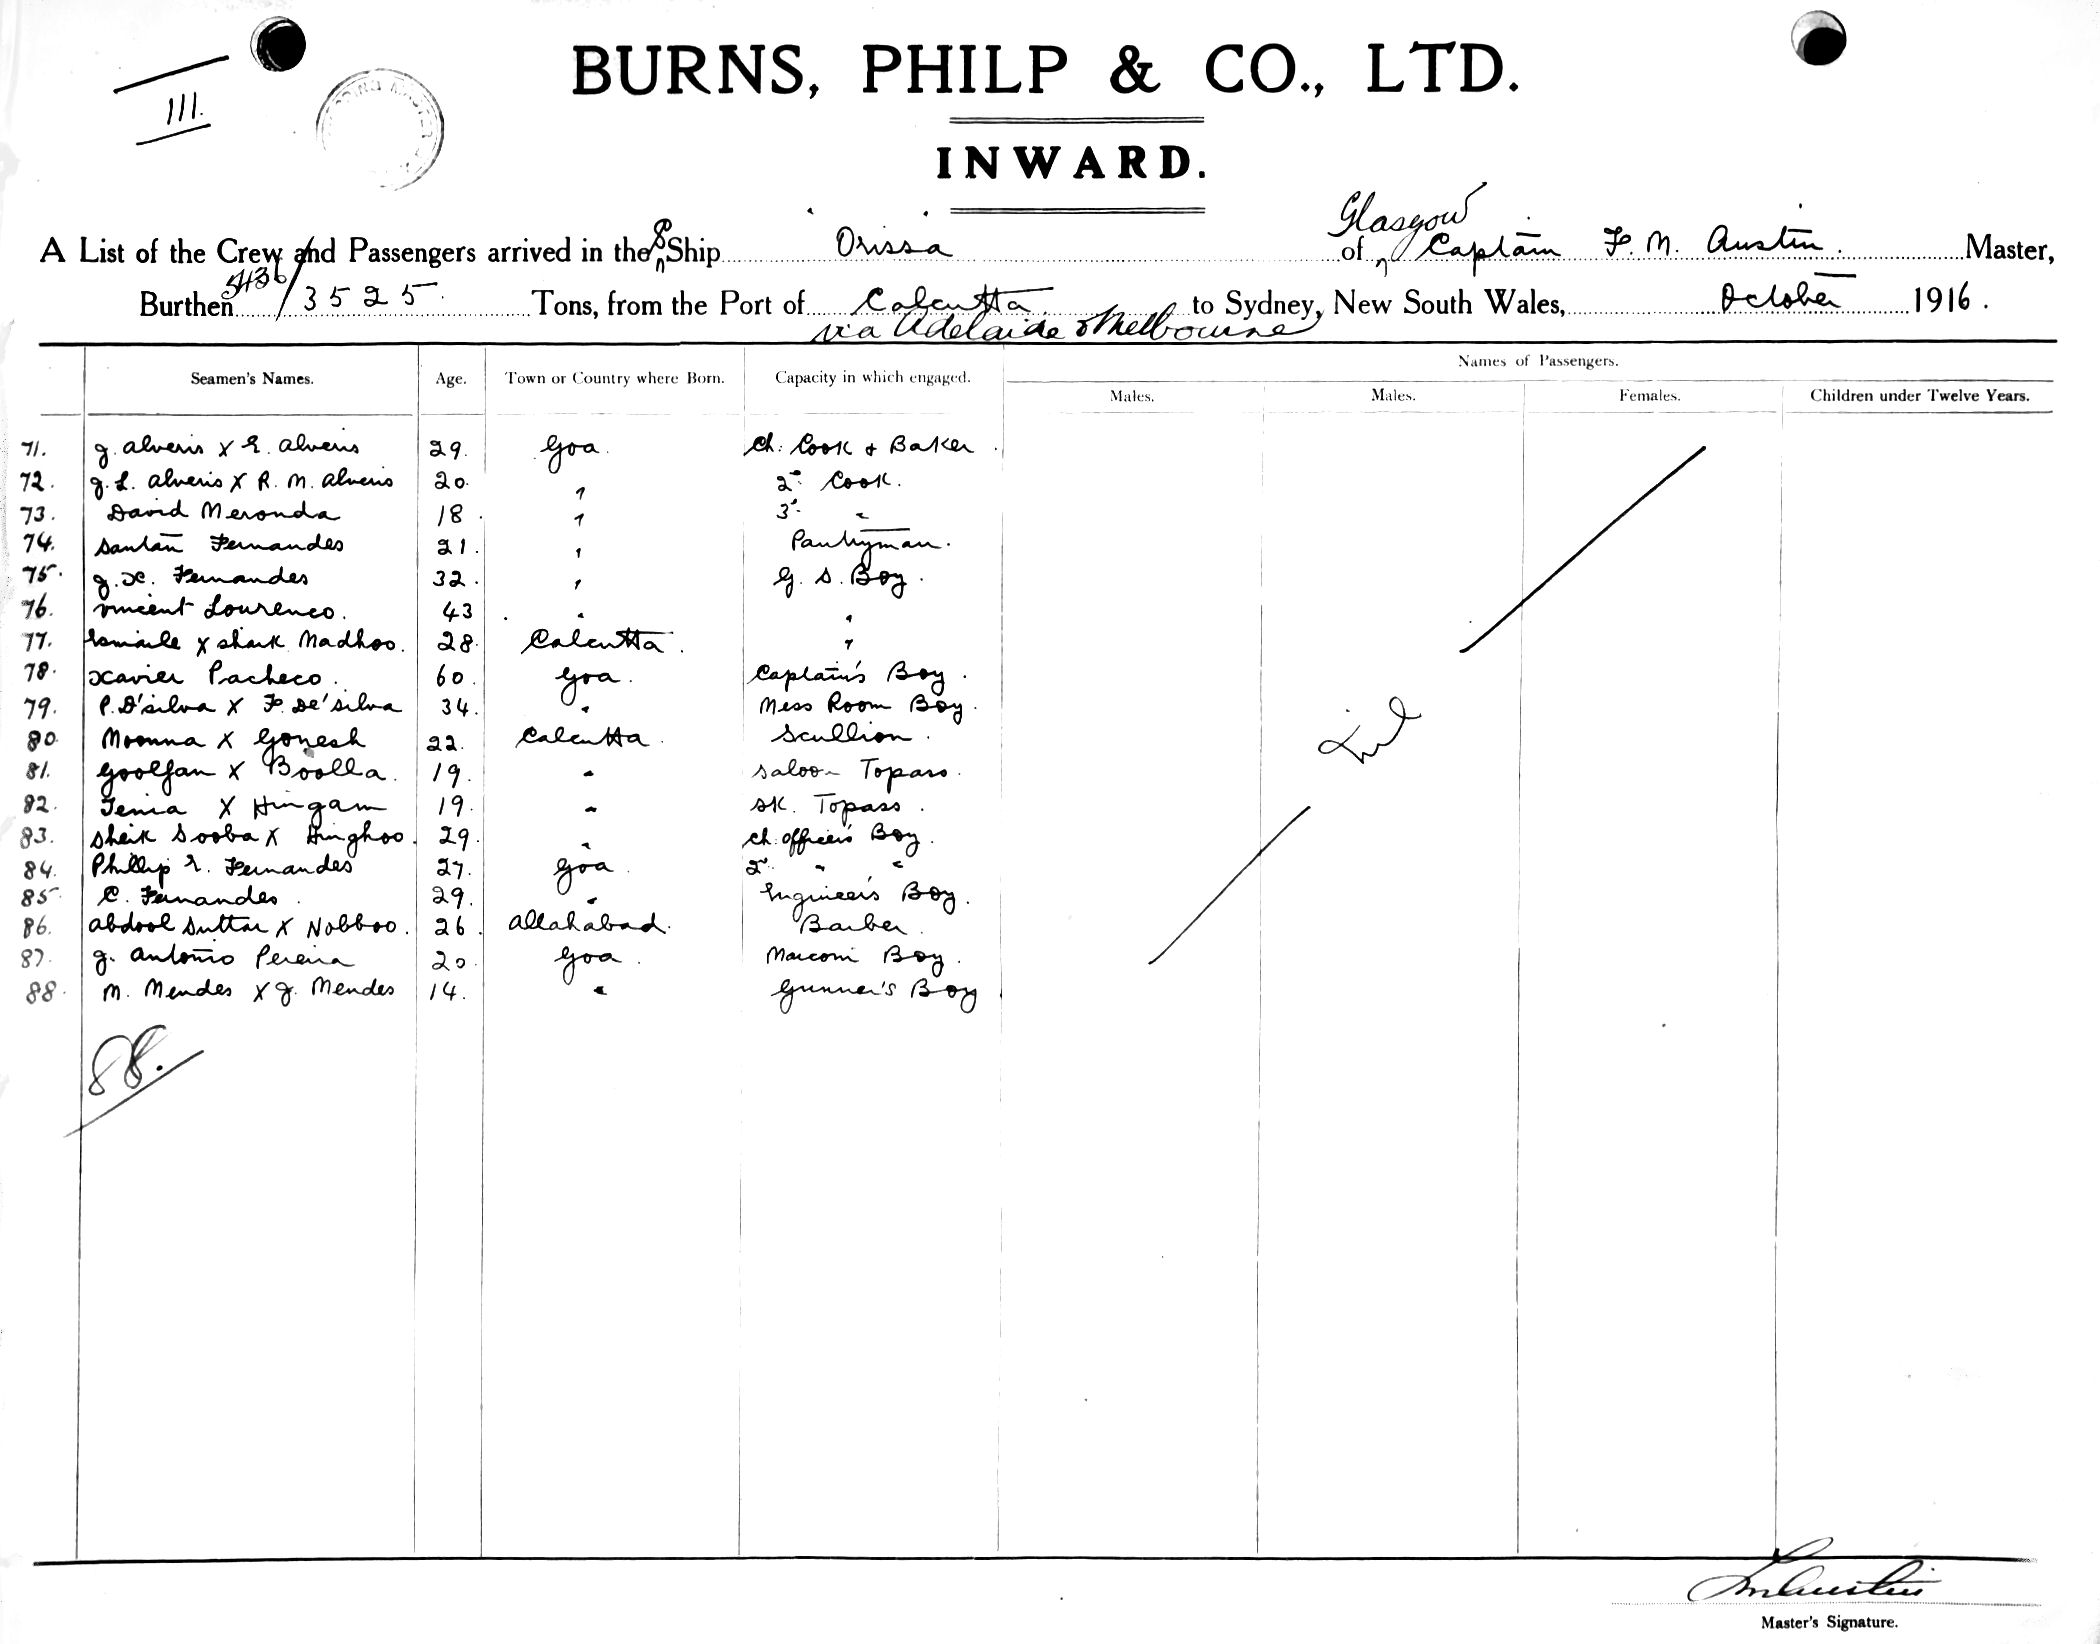 III.
BURNS, PHILP & CO., LTD.
INWARD.
A List of the Crew and Passengers arrived in the S Ship Orissa of Glasgow Captain F. M. Austin. Master,
Burthen 5436/3525 Tons, from the Port of Calcutta to Sydney, New South Wales, October 1916.
via Adelaide & Melbourne
Names of Passengers.
Seamen's Names. Age. Town or Country where Born. Capacity in which engaged. Males. Males. Females. Children under Twelve Years.
71. J. Alveris X E. Alveris 29. Goa. Ch: Cook & Baker.
72. J. L. Alveris X R. M. Alveris 20. " 2d Cook.
73. David Meronda 18. " 3d "
74. Santan Fernandes 21. " Pantryman.
75. J. X. Fernandes 32. " G. S. Boy.
76. Vincent Lourenco. 43 " "
77. Esmaile X Shaik Madhoo. 28. Calcutta. "
78. Xavier Pacheco. 60. Goa. Captain's Boy.
79. P. D'Silva X F. De'Silva 34. " Mess Room Boy.
80. Moonna X Gonesh 22. Calcutta. Scullion.
81. Goolfan X Boolla. 19. " Saloon Topass.
82. Tenia X Hingam 19. " Sk. Topass.
83. Sheik Sooba X Hinghoo. 29. " Ch. Officer's Boy.
84. Phillip E. Fernandes 27. Goa. 2d " "
85. C. Fernandes. 29. " Engineer's Boy.
86. Abdool Suttar X Nobboo. 26. Allahabad. Barber.
87. J. Antonio Pereira 20. Goa. Marconi Boy.
88. M. Mendes X J. Mendes 14. " Gunner's Boy
Nil
88.
F. M. Austin
Master's Signature.